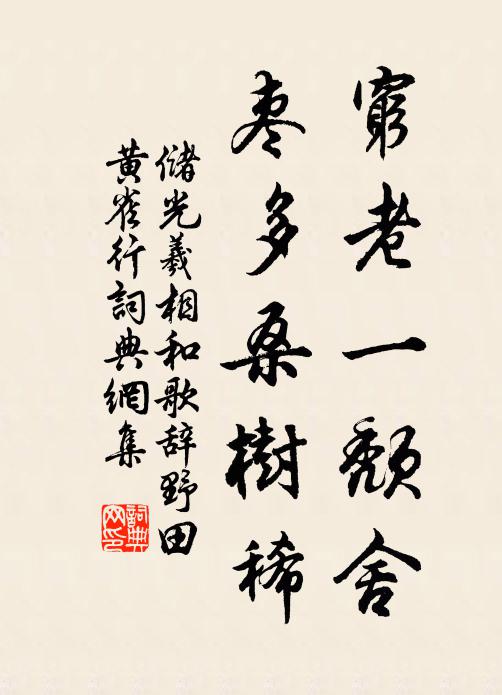 窮老一頹舍
棗多桑樹稀
儲光羲相和歌辞野田
黄雀行詞典網集
詞典
网印